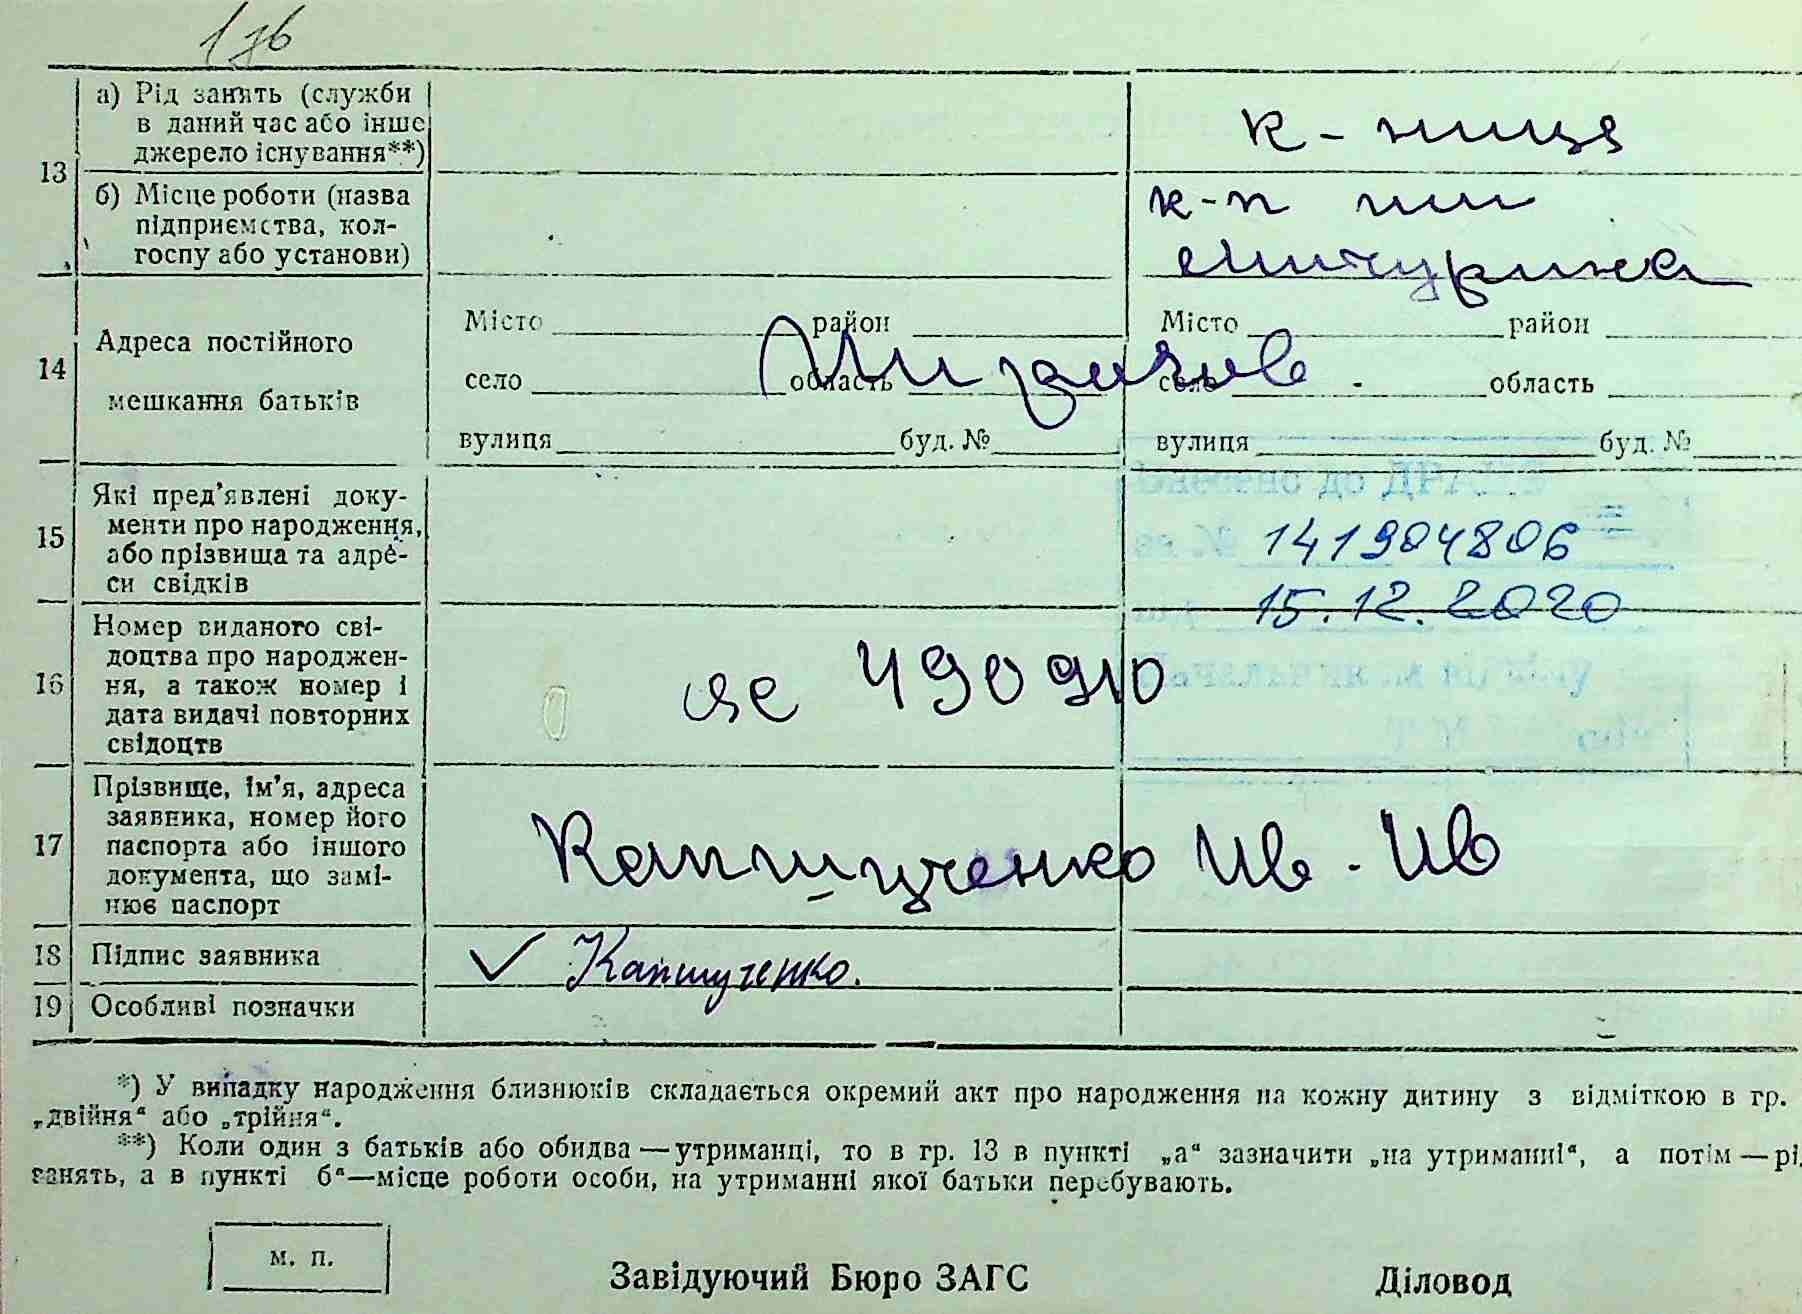 13
а) Рід занять (служби
в даний час або інше
джерело існування**)
к - ниця
б) Місце роботи (назва
підприємства, кол-
госпу або установи)
к-п им
Мичурина
14
Адреса постійного
мешкання батьків
Місто район
село область
вулиця буд. №
Місто район
село область
вулиця буд. №
15
Які пред’явлені доку-
менти про народження,
або прізвища та адре-
си свідків
Внесено до ДРАЦС
за № 141904806
15.12.2020
16
Номер виданого сві-
доцтва про народжен-
ня, а також номер і
дата видачі повторних
свідоцтв
490910
17
Прізвище, ім’я, адреса
заявника, номер його
паспорта або іншого
документа, що замі-
нює паспорт
Капшученко Ив - Ив
18
Підпис заявника
Капшученко.
19
Особливі позначки
*) У випадку народження близнюків складається окремий акт про народження на кожну дитину з відміткою в гр.
„двійня“ або „трійня“.
**) Коли один з батьків або обидва — утриманці, то в гр. 13 в пункті „а“ зазначити „на утриманні“, а потім — рі
занять, а в пункті б“—місце роботи особи, на утриманні якої батьки перебувають.
м. п.
Завідуючий Бюро ЗАГС
Діловод